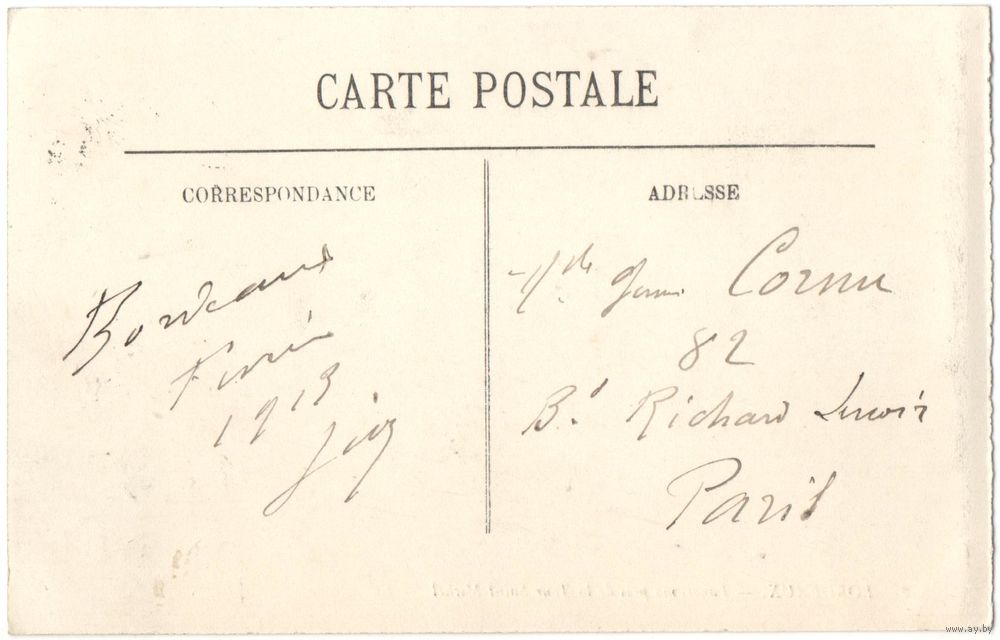 CARTE POSTALE
CORRESPONDANCE
ADRESSE
Bordeaux
Février
1913
Cornu
82
Bd Richard Lenoir
Paris
www.ay.by